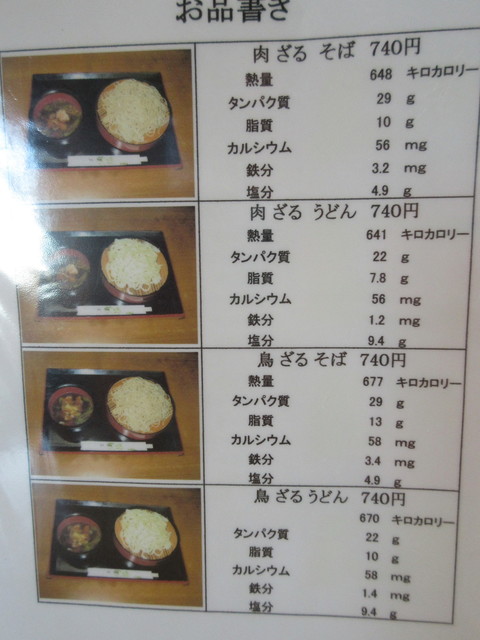 お品書き
肉 ざる そば 740円
熱量 648 キロカロリー
タンパク質 29 g
脂質 10 g
カルシウム 56 mg
鉄分 3.2 mg
塩分 4.9 g
肉 ざる うどん 740円
熱量 641 キロカロリー
タンパク質 22 g
脂質 7.8 g
カルシウム 56 mg
鉄分 1.2 mg
塩分 9.4 g
鳥 ざる そば 740円
熱量 677 キロカロリー
タンパク質 29 g
脂質 13 g
カルシウム 58 mg
鉄分 3.4 mg
塩分 4.9 g
鳥 ざる うどん 740円
670 キロカロリー
タンパク質 22 g
脂質 10 g
カルシウム 58 mg
鉄分 1.4 mg
塩分 9.4 g